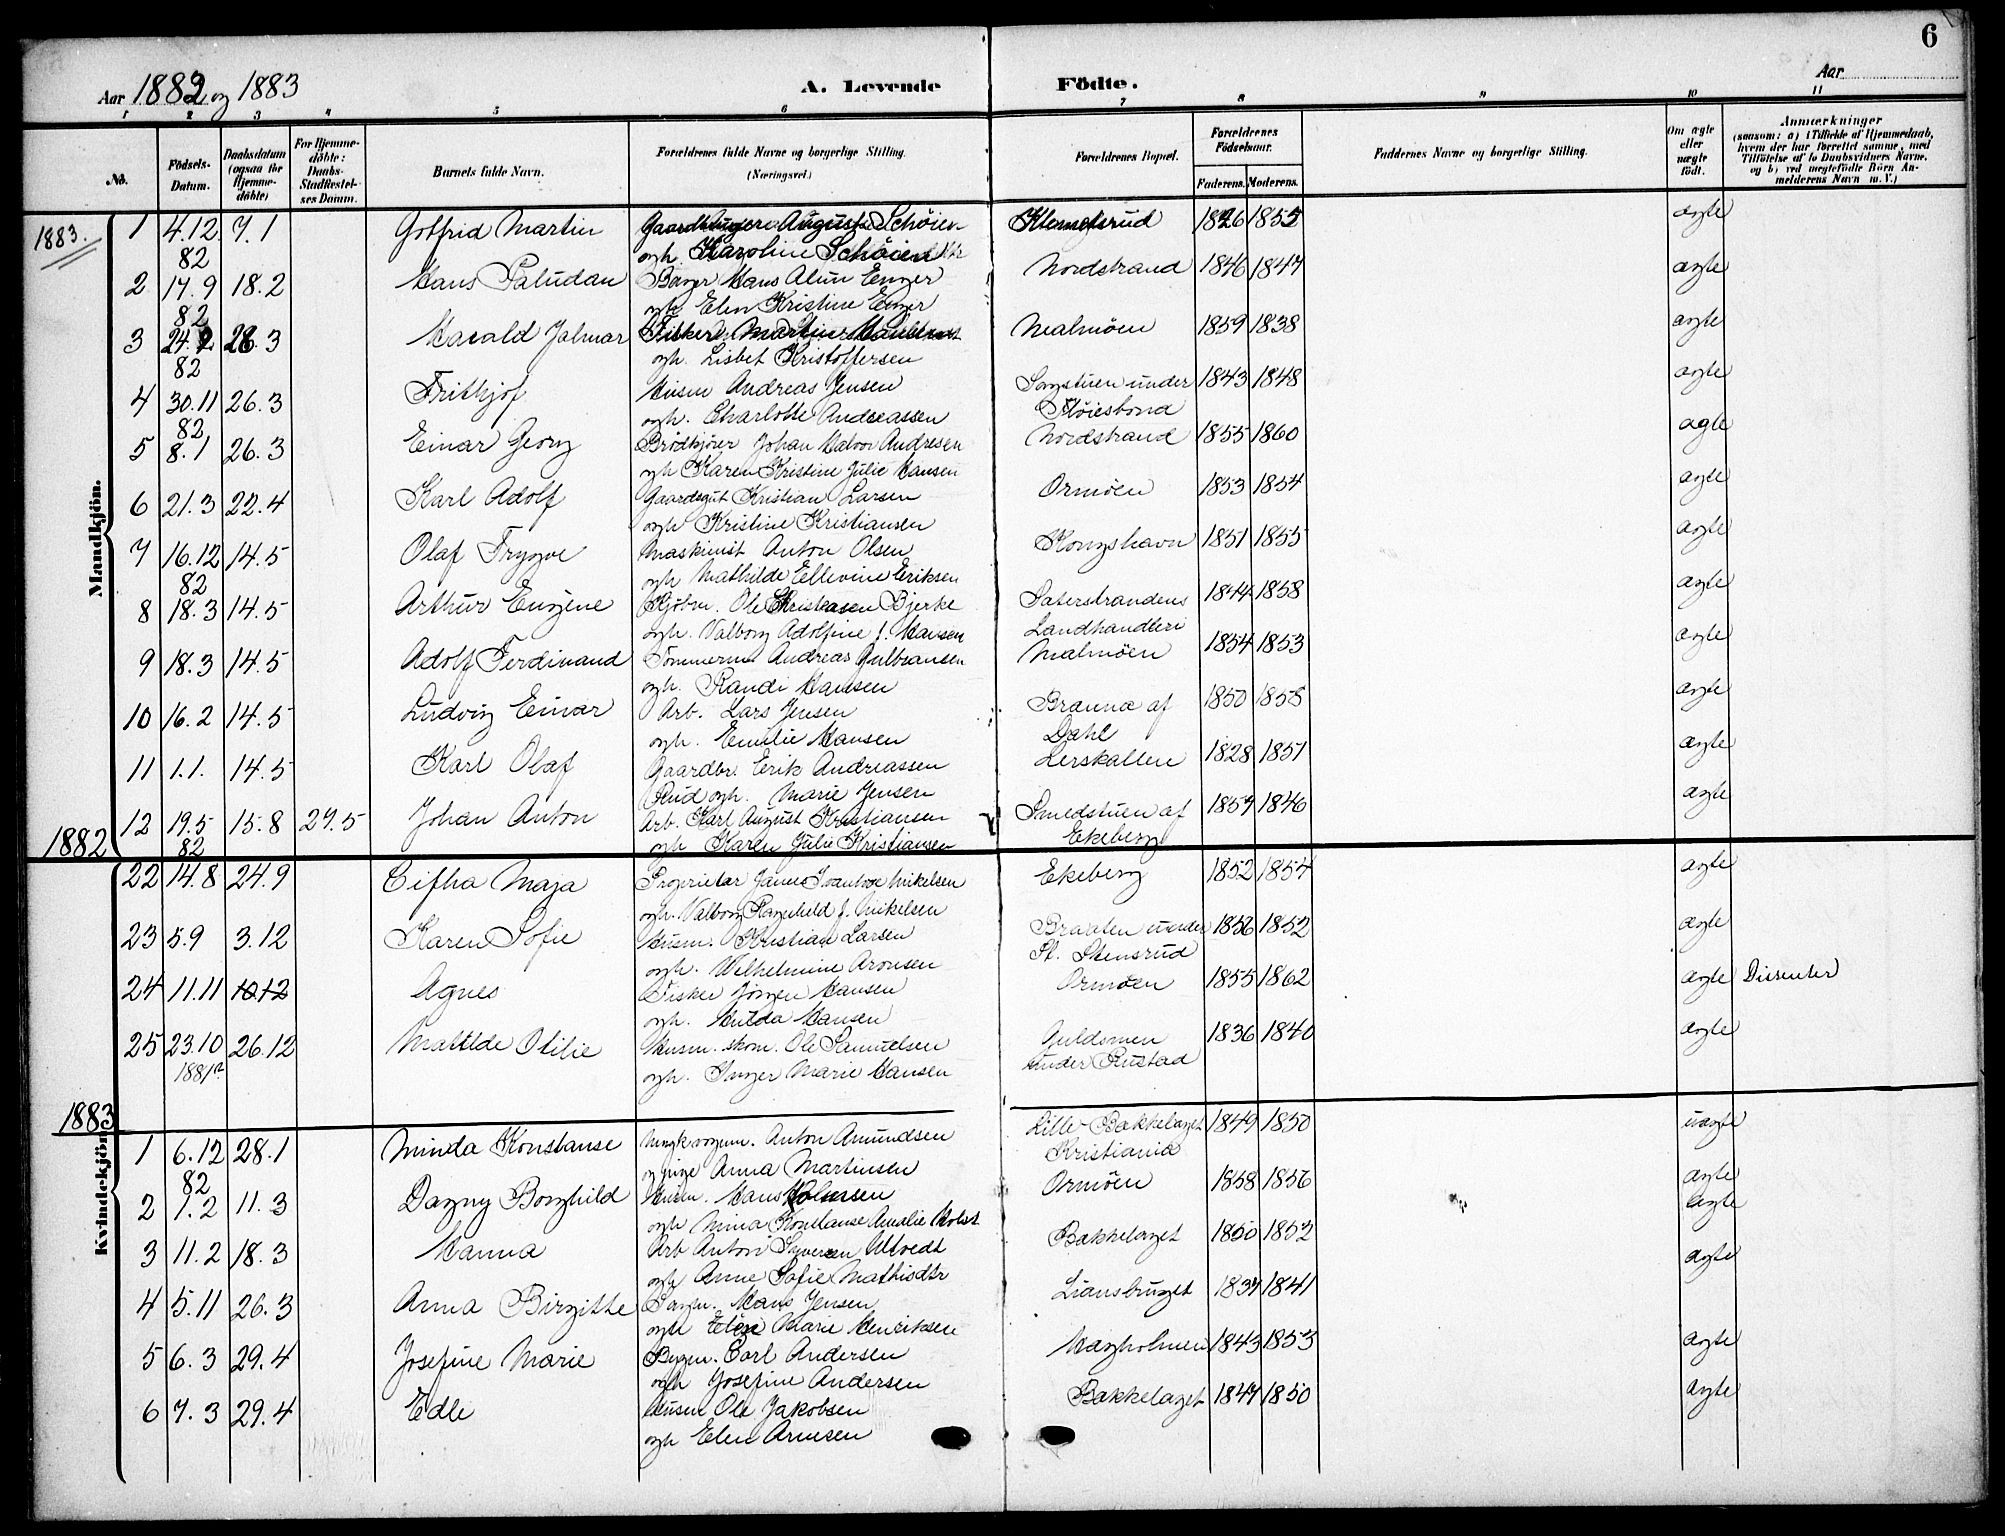 6
Aar 1882 og 1883 A. Levende Födte. Aar
1 2 3 4 5 6 7 8 9 10 11
No. Födsels-Datum. Daabsdatum (ogsaa for Hjemme-döbte) For Hjemme-döbte: Daabs-Stadfæstel-ses Datum. Barnets fulde Navn. Forældrenes fulde Navne og borgerlige Stilling. (Næringsvei.) Forældrenes Bopæl. Forældrenes Födselsaar. Faderens. Moderens. Faddernes Navne og borgerlige Stilling. Om ægte eller uægte födt. Anmærkninger (saasom: a) i Tilfælde af Hjemmedaab, hvem der har forrettet samme, med Tilföielse af to Daabsvidners Navne, og b) ved uægtefödte Börn An-melderens Navn m. V.)
Mandkjön.
1883. 1 4.12 7.1 Gotfrid Martin Gaardbruger August Schöien Klemetsrud 1826 1852 ægte
82 ogh. Karoline Schöien
2 17.9 18.2 Hans Paludan Bager Hans Alun Enger Nordstrand 1846 1847 ægte
82 ogh. Elen Kristine Enger
3 24.2 26.3 Harald Jalmar Fisker Martin Malmöen 1859 1838 ægte
82 ogh. Lisbet Kristoffersen
4 30.11 26.3 Frithjof Husm Andreas Jensen Sagstuen under 1843 1848 ægte
82 ogh. Charlotte Andreassen Fløiesbond
5 8.1 26.3 Einar Georg Brödkjører Johan Halvor Andresen Nordstrand 1855 1860 ægte
ogh Karen Kristine Julie Hansen
6 21.3 22.4 Karl Adolf Gaardsgut Kristian Larsen Ormöen 1853 1854 ægte
ogh Kristine Kristiansen
7 16.12 14.5 Olaf Trygve Maskinist Anton Olsen Kongshavn 1851 1855 ægte
82 ogh Mathilde Ellevine Eriksen
8 18.3 14.5 Arthur Eugene Kjöbm. Ole Kristiansen Bjerke Saterstrandens 1844 1858 ægte
ogh. Valborg Adolfine f. Hansen Landhandleri
9 18.3 14.5 Adolf Ferdinand Tömmerm. Andreas Gulbransen Malmöen 1854 1853 ægte
ogh. Randi Hansen
10 16.2 14.5 Ludvig Einar Arb. Lars Jensen Brænna af 1850 1858 ægte
ogh. Emilie Hansen Dahl
11 1.1. 14.5 Karl Olaf Gaardbr. Eerik Andreassen Lerskallen 1828 1851 ægte
Rud ogh. Marie Jensen
12 19.5 15.8 27.5 Johan Anton Arb. Karl August Kristiansen Smedstuen af 1857 1846 ægte
82 ogh Karen Julie Kristiansen Ekeberg
1882
Kvindekjön.
22 14.8 24.9 Cifha Maja Proprietær James Mikelsen Ekeberg 1852 1854 ægte
ogh. Valborg Ragnhild f. Mikelsen
23 5.9 3.12 Karen Sofie Husm. Kristian Larsen Braaten under 1856 1852 ægte
ogh. Wilhelmine Aronsen St. Stensrud
24 11.11 10.12 Agnes Fisker Jörgen Hansen Ormöen 1855 1862 ægte Dissenter
ogh. Hulda Hansen
25 23.10 26.12 Matilde Otilie Husm. skom. Ole Samuelsen Guldsmen 1836 1840 ægte
1881? ogh. Inger Marie Hansen under Rustad
1883
1 6.12 28.1 Minda Konstanse Anton Amundsen Lille Bækkelaget 1849 1850 uægte
82 og pige Anna Martinsen Kristiania
2 1.2 11.3 Dagny Borghild Husm. Hans Holmsen Ormöen 1858 1856 ægte
ogh Mina Konstanse Amalie Holst ægte
3 11.2 18.3 Hanna Arb Anton Syversen Utvedt Bækkelaget 1850 1852
ogh Anne Sofie Mathisdtr ægte
4 5.11 26.3 Anna Birgitte Sagm. Hans Jensen Liansbruget 1837 1841
ogh Elen Marie Henriksen
5 6.3 29.4 Josefine Marie Bygm. Carl Andersen Hægholmen 1843 1853 ægte
ogh Josefine Andersen
6 7.3 29.4 Edle Husm Ole Jakobsen Bækkelaget 1847 1850 ægte
ogh Elen Arnesen